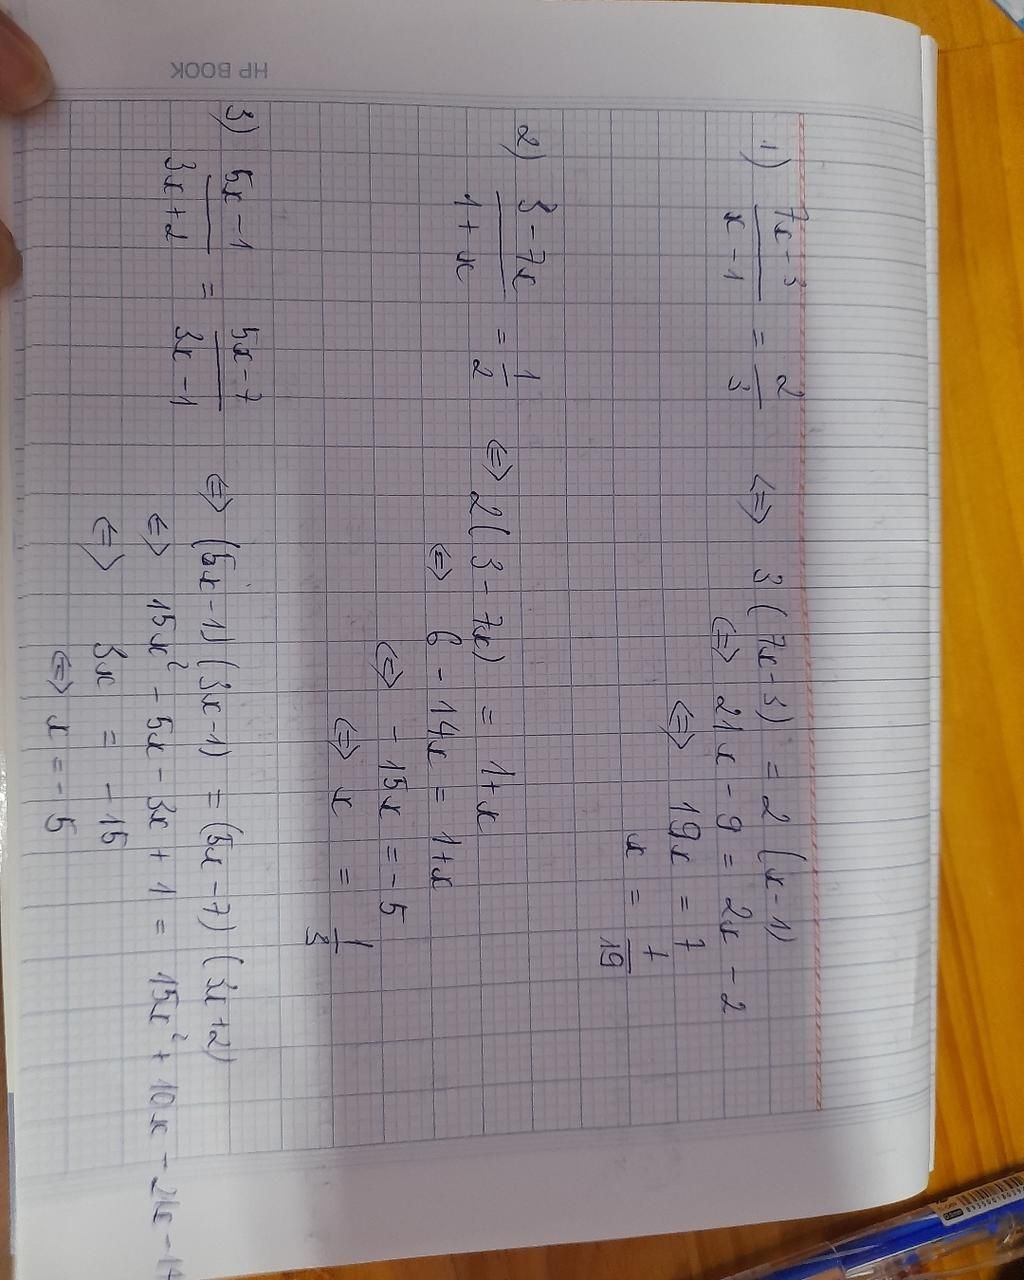 1) \frac{7x-3}{x-1} = \frac{2}{3} ⇔ 3(7x-3) = 2(x-1)
⇔ 21x - 9 = 2x - 2
⇔ 19x = 7
x = \frac{7}{19}
2) \frac{3-7x}{1+x} = \frac{1}{2} ⇔ 2(3-7x) = 1+x
⇔ 6 - 14x = 1+x
⇔ -15x = -5
⇔ x = \frac{1}{3}
3) \frac{5x-1}{3x+2} = \frac{5x-7}{3x-1} ⇔ (5x-1)(3x-1) = (5x-7)(3x+2)
⇔ 15x² - 5x - 3x + 1 = 15x² + 10x - 21x - 14
⇔ 3x = -15
⇔ x = -5
HP BOOK